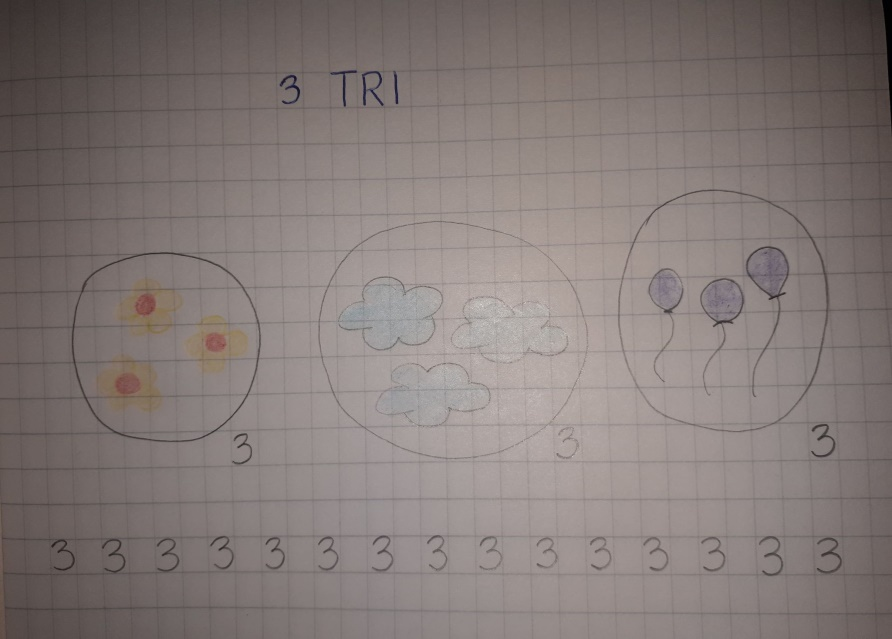 3 TRI
3 3 3
3 3 3 3 3 3 3 3 3 3 3 3 3 3 3